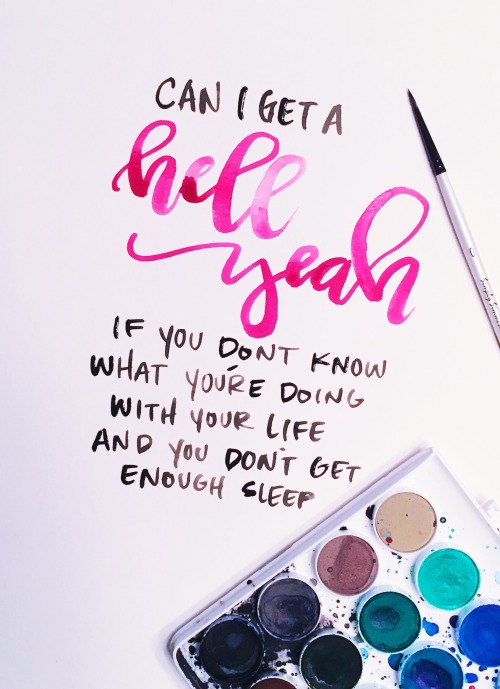 CAN I GET A
hell
yeah
IF YOU DON'T KNOW
WHAT YOU'RE DOING
WITH YOUR LIFE
AND YOU DON'T GET
ENOUGH SLEEP
Simply Simmons